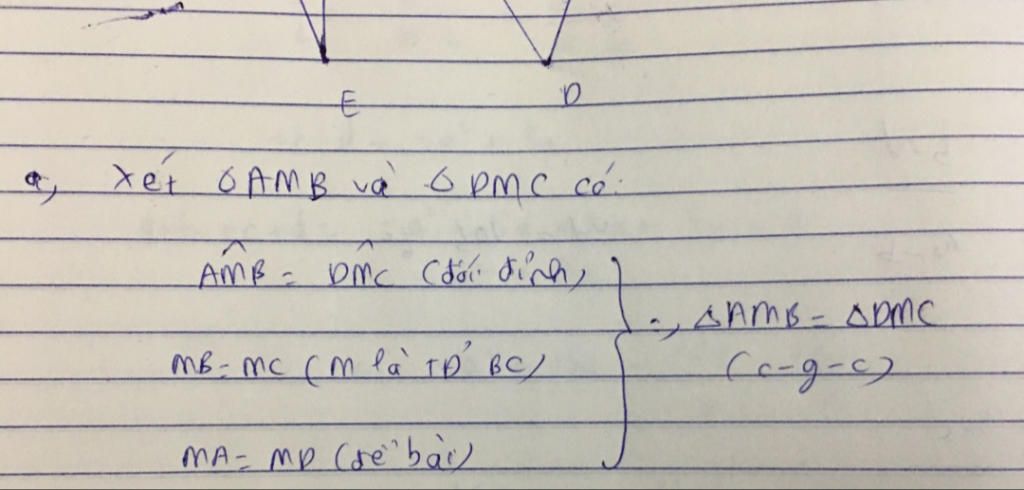 E D
a, Xét ΔAMB và ΔDMC có:
AM̂B = DM̂C (đối đỉnh)
MB = MC (M là TĐ BC)
MA = MD (đề bài)
=> ΔAMB = ΔDMC
(c-g-c)